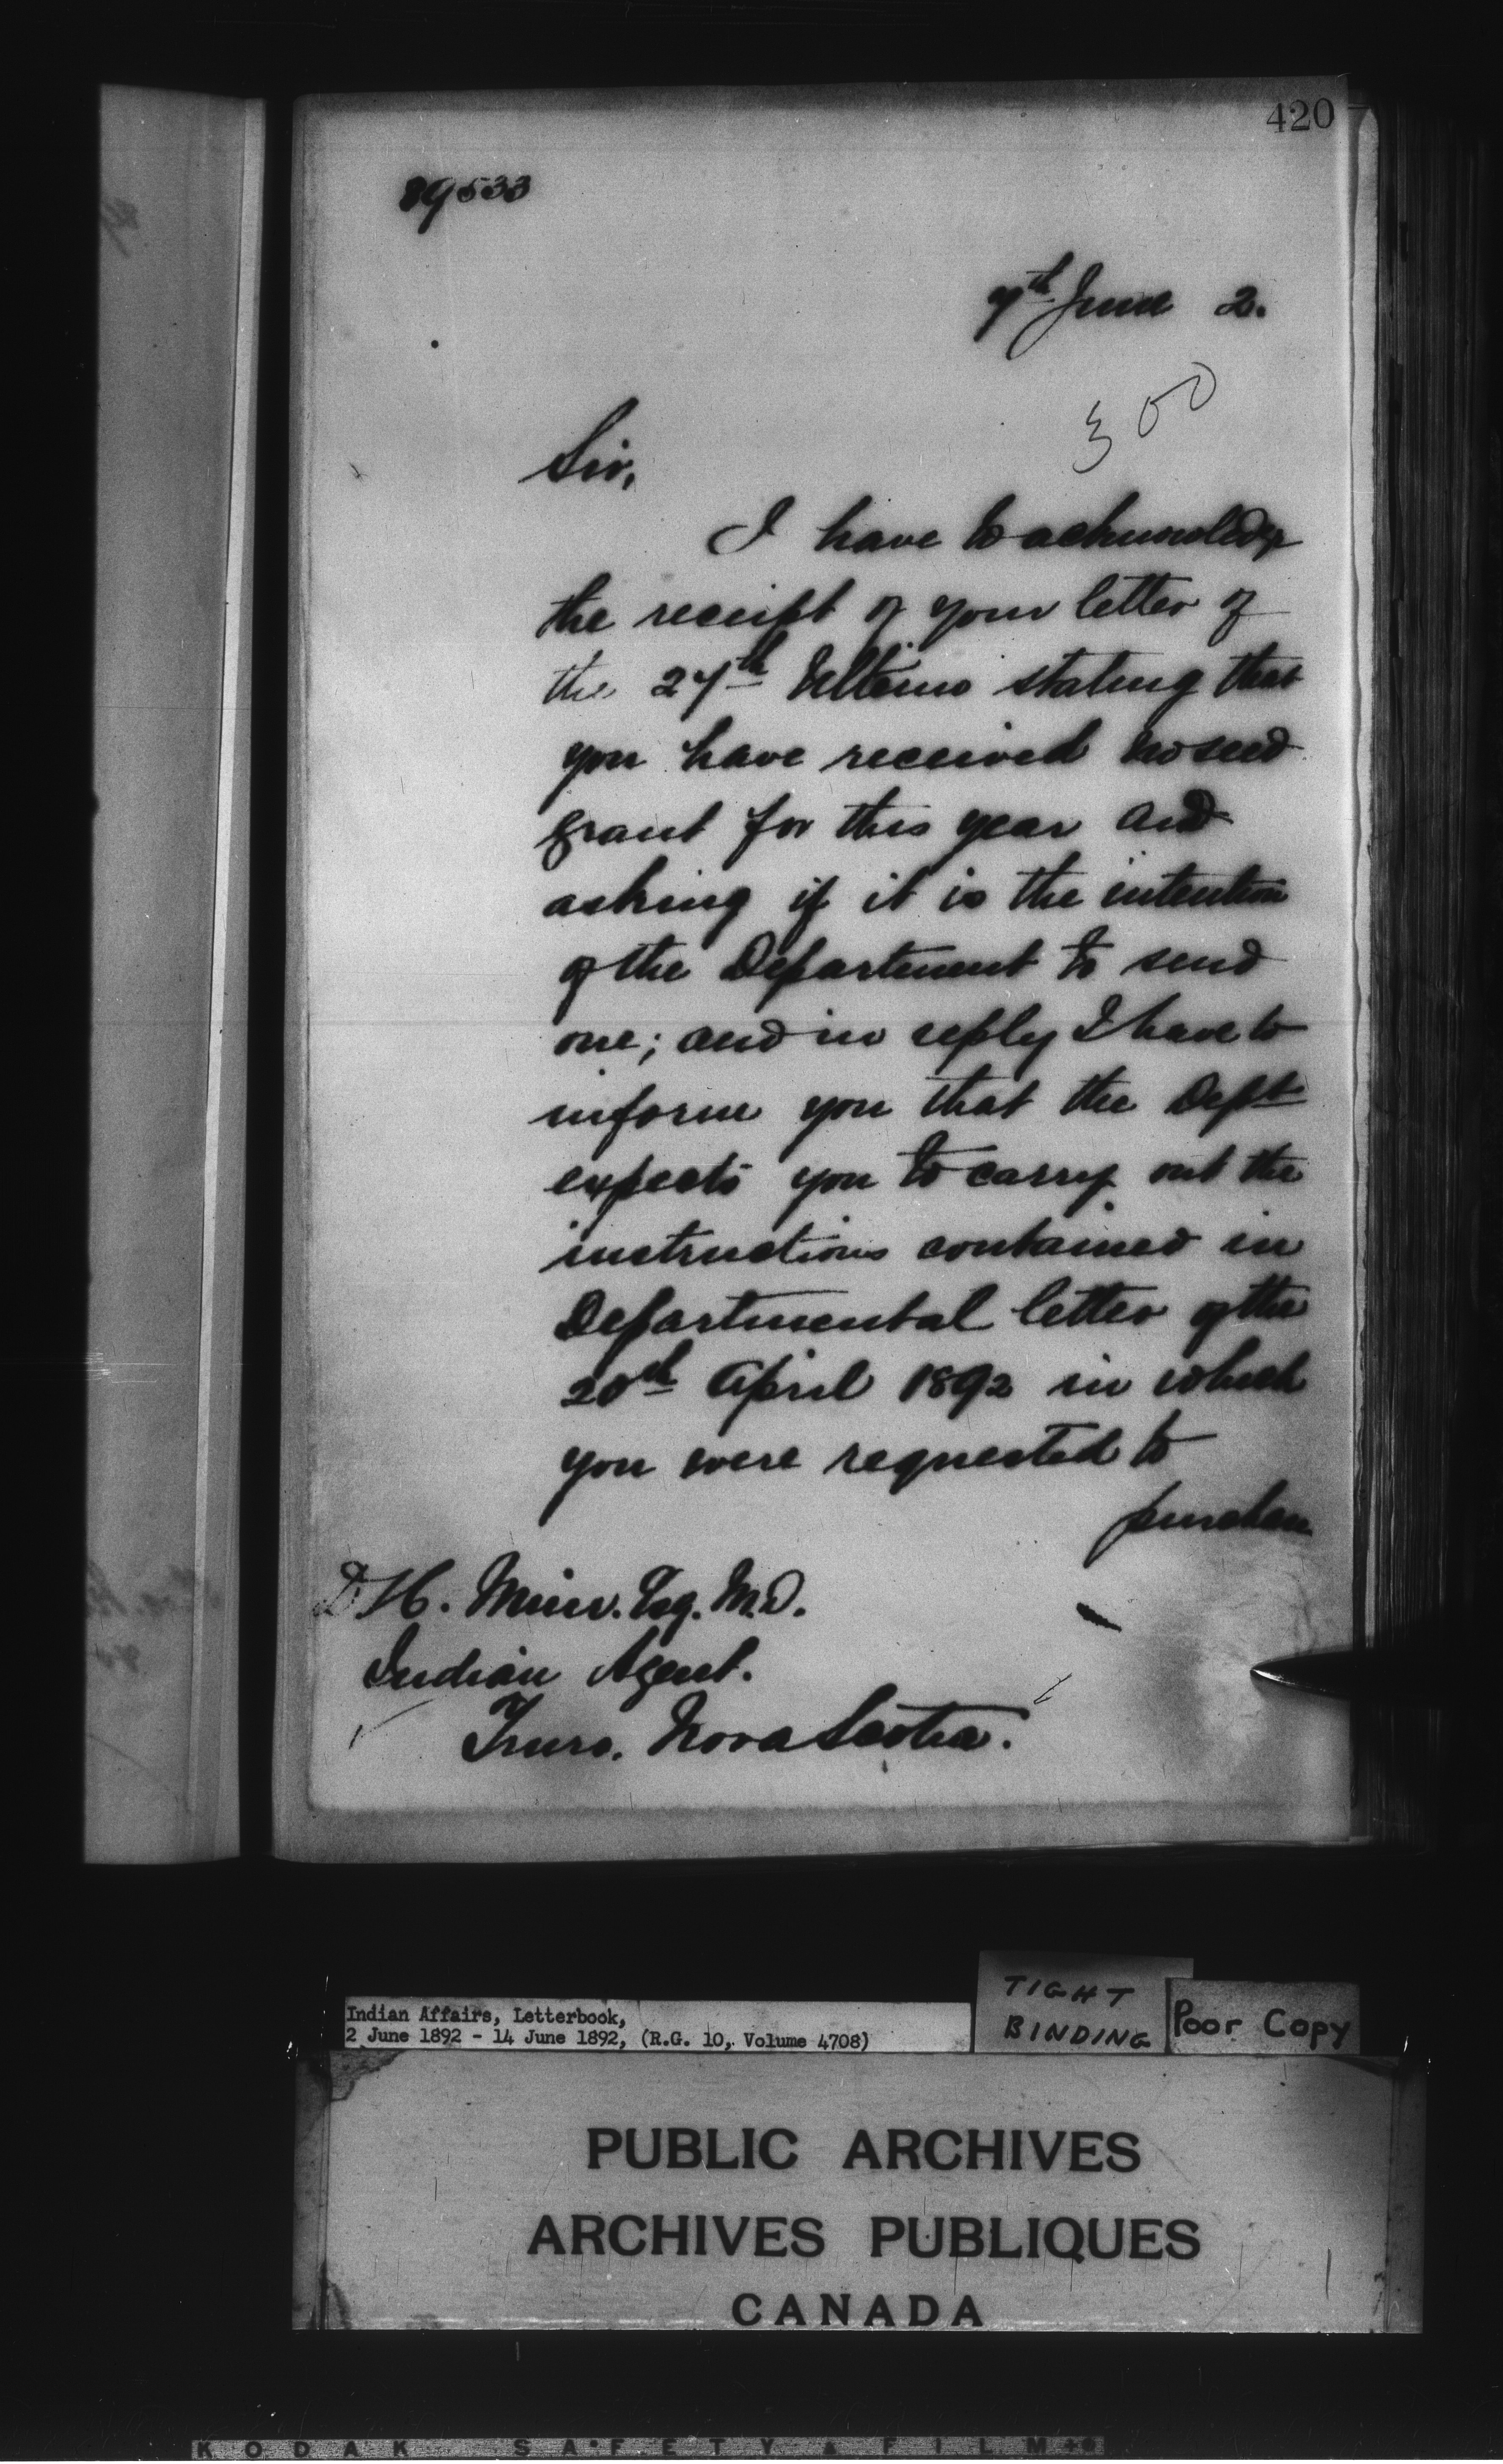 420
89533
7th June 2.
300
Sir,
I have to acknowledge
the receipt of your letter of
the 27th Ultimo stating that
you have received no seed
grant for this year and
asking if it is the intention
of the Department to send
one; and in reply I have to
inform you that the Dept
expects you to carry out the
instructions contained in
Departmental letter of the
20th April 1892 in which
you were requested to
purchase
D. H. Muir. Esq. M.D.
Indian Agent.
Truro. Nova Scotia.
Indian Affairs, Letterbook,
2 June 1892 - 14 June 1892, (R.G. 10, Volume 4708)
TIGHT
BINDING
Poor Copy
PUBLIC ARCHIVES
ARCHIVES PUBLIQUES
CANADA
KODAK SAFETY FILM